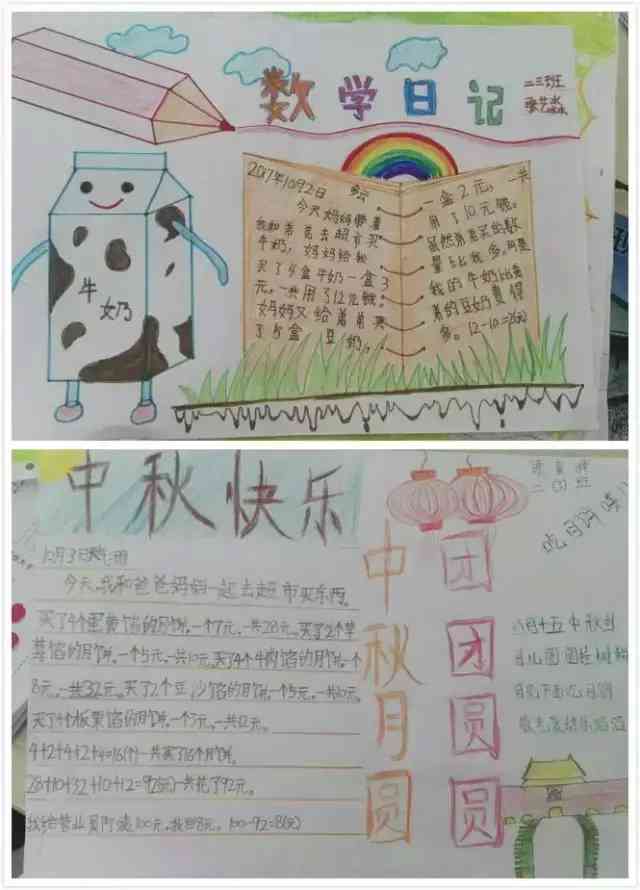 数学日记
二三班
牛奶
2017年10月2日 多云
今天妈妈带着
我和弟弟去超市买
牛奶,妈妈给我
买了4盒牛奶一盒3
元,一共用了12元钱。
妈妈又给弟弟买
了5盒豆奶,
一盒2元,一共
用了10元钱。
虽然弟弟买的数
量比我多,可是
我的牛奶比弟
弟的豆奶贵得
多。12-10=2(元)
中秋快乐
10月3日
今天,我和爸爸妈妈一起去超市买东西。
买了4个蛋黄馅的月饼,一个7元,一共28元。买了2个
馅的月饼,一个5元,一共10元。买了4个牛肉馅的月饼,一个
8元,一共32元。买了2个豆沙馅的月饼,一个5元,一共10元。
买了4个板栗馅的月饼,一个3元,一共12元。
4+2+4+2+4=16(个)一共买了16个月饼。
28+10+32+10+12=92(元)一共花了92元。
我给营业员阿姨100元,找回8元。100-92=8(元)
中秋月圆
团团圆圆
二(3)班
八月十五中秋到
月儿圆圆挂树梢